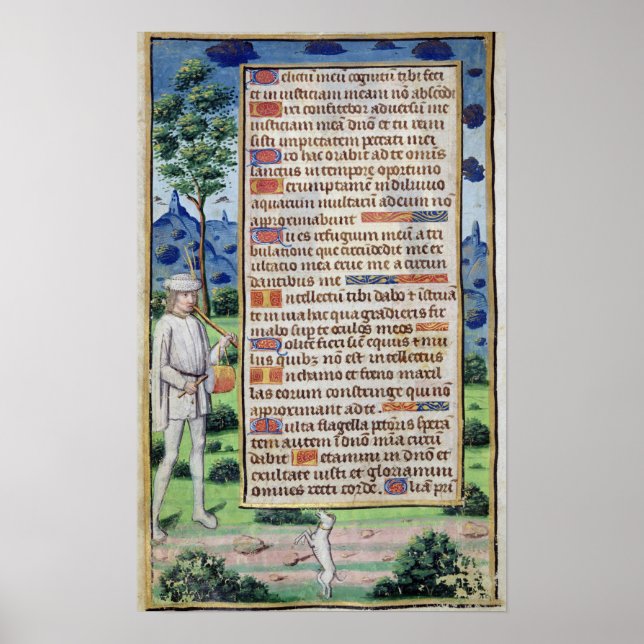 Delictū meū cognitū tibi feci
et in iusticiam meam nō abscōdi
Dixi confitebor aduersum me
iusticiam meā dnō et tu remi
sisti impietatem peccati mei
Pro hac orabit ad te omīs
sanctus in tempore oportuno
Uerumptamē in diluuio
aquarum multarū ad eum nō
aproximabunt
Tu es refugium meū a tri
bulatione que circūdedit me ex
ultatio mea erue me a circun
dantibus me
Intellectū tibi dabo & īstruā
te in uia hac qua gradieris fir
mabo sup te oculos meos
Nolite fieri sicut equus et mu
lus quibz nō est intellectus
In chamo et freno maxil
las eorum constringe qui nō
approximant ad te
Multa flagella pctōris sperā
tem autem ī dnō mīa circū
dabit Letamini in dnō et
exultate iusti et gloriamini
omnes recti corde. Gloria pri